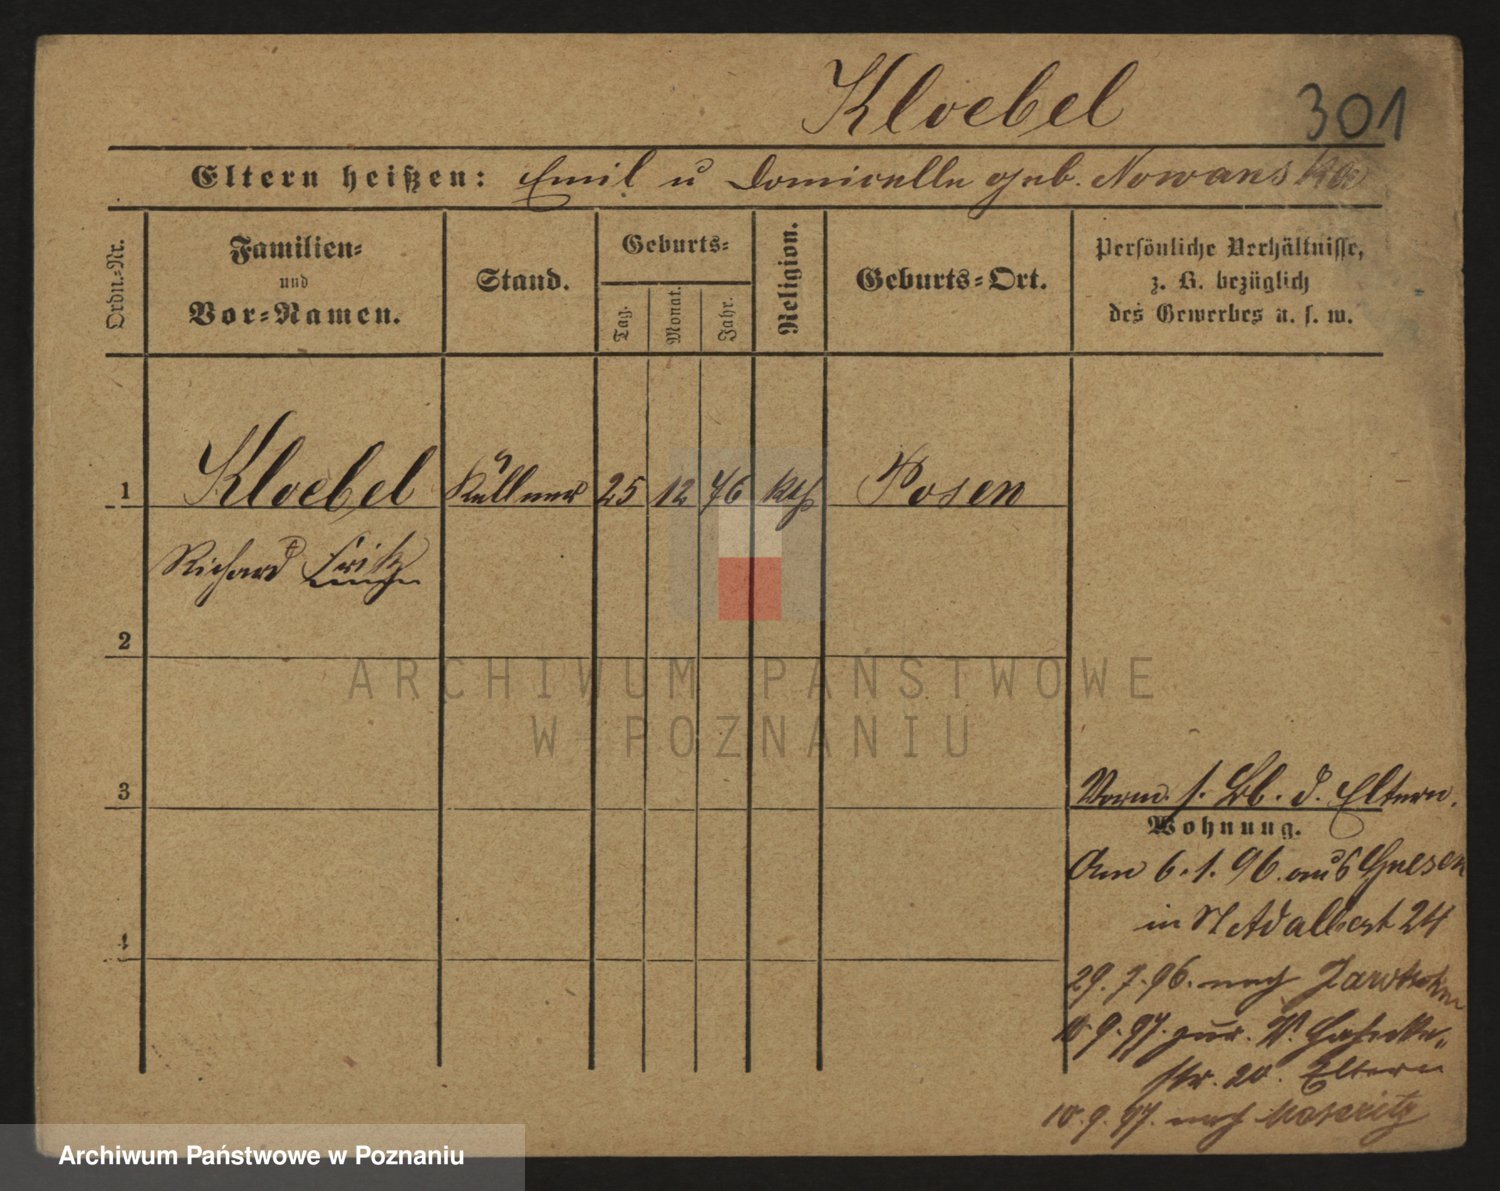 Kloebel
301
Eltern heißen: Emil u Domicella geb. Nowanska
Ordn.-Nr.
Familien-
und
Vor-Namen.
Stand.
Geburts-
Tag.
Monat.
Jahr.
Religion.
Geburts-Ort.
Persönliche Verhältnisse,
z. B. bezüglich
des Gewerbes u. s. w.
1 Kloebel Kellner 25 12 76 kth Posen
Richard Fritz
2
3
4
Vorm. s. Bb. d. Eltern.
Wohnung.
Am 6.1.96. aus Gnesen
in St Adalbert 24
29.7.96. nach Jarotschin
10.9.97. zur.
str. 20. Eltern
10.9.97. nach
ARCHIWUM PAŃSTWOWE
W POZNANIU
Archiwum Państwowe w Poznaniu